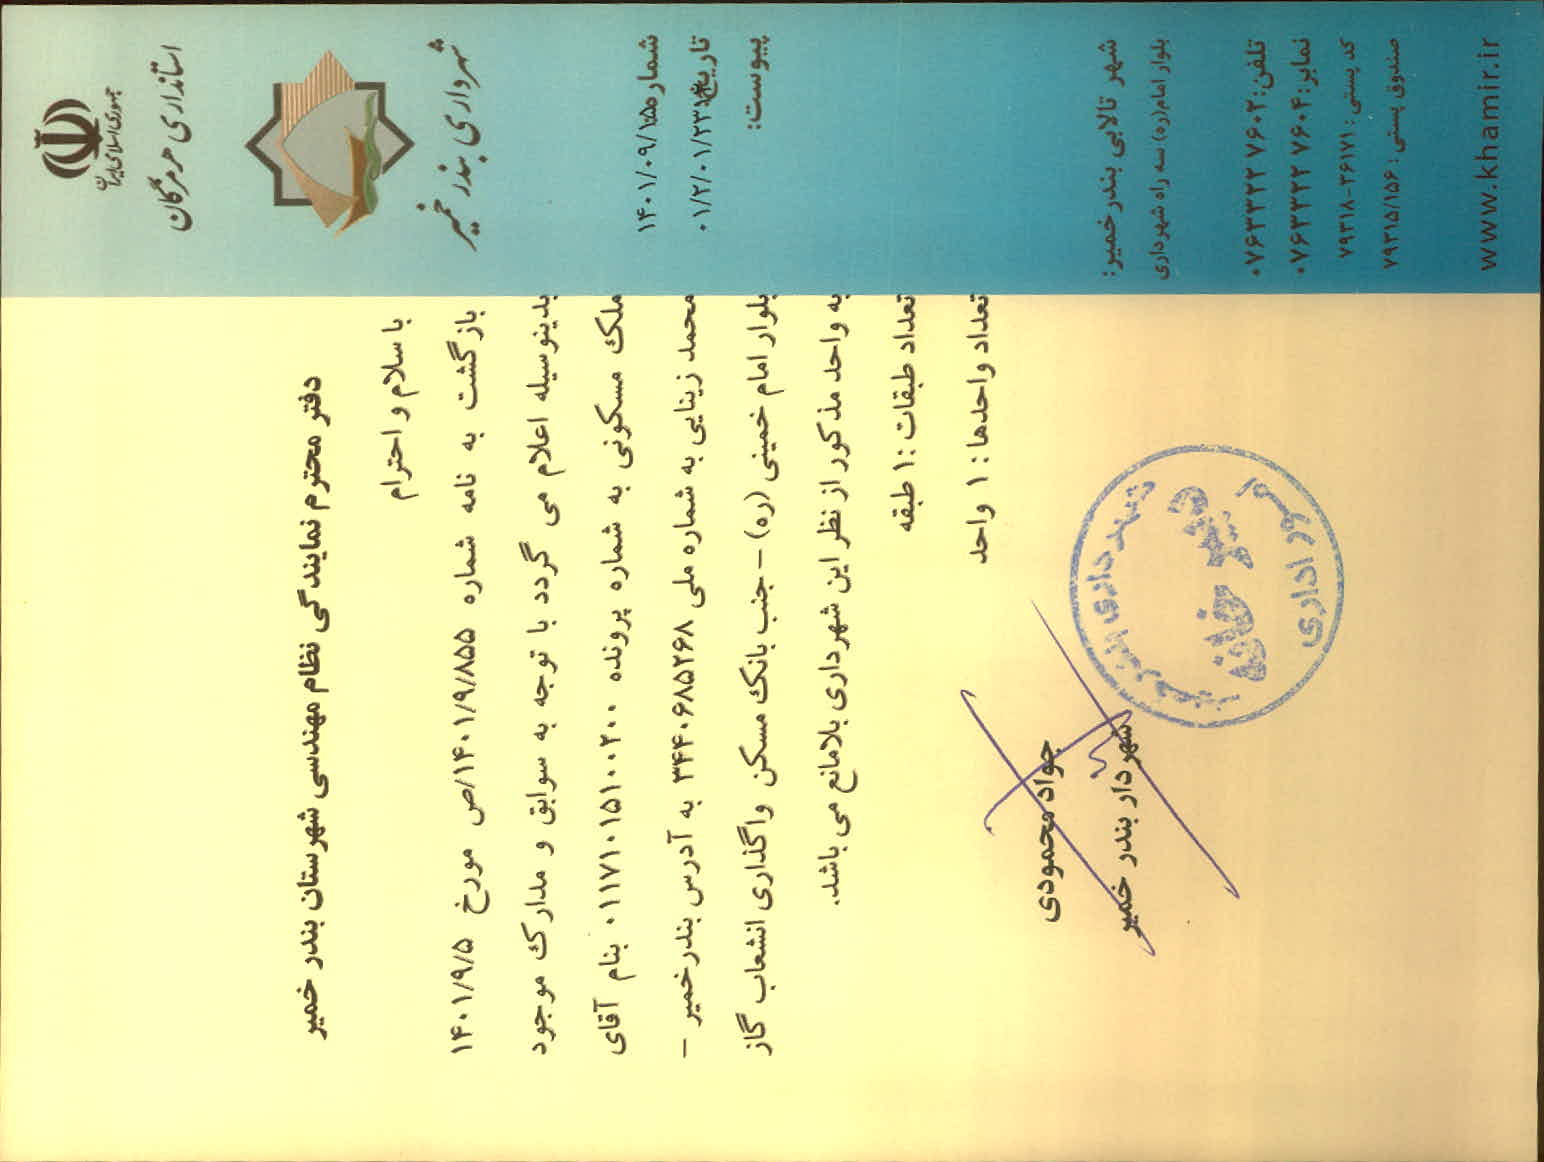 جمهوری اسلامی ایران
استانداری هرمزگان
شهرداری بندر خمیر
شماره
۱۴۰۱/۰۹/۱۵
تاریخ
۰۱/۲/۰۱/۲۳۱
پیوست:
شهر تالابی بندرخمیر:
بلوار امام(ره) سه راه شهرداری
تلفن: ۰۷۶۳۳۲۲۷۶۰۲
نمابر: ۰۷۶۳۳۲۲۷۶۰۴
کد پستی: ۷۹۳۱۸-۳۶۱۷۱
صندوق پستی: ۷۹۳۱۵/۱۵۶
www.khamir.ir
دفتر محترم نمایندگی نظام مهندسی شهرستان بندر خمیر
با سلام و احترام
بازگشت به نامه شماره ۱۴۰۱/۹/۸۵۵/ص مورخ ۱۴۰۱/۹/۵
بدینوسیله اعلام می گردد با توجه به سوابق و مدارک موجود
ملک مسکونی به شماره پرونده ۰۱۱۷۱۰۱۵۱۰۰۲۰۰ بنام آقای
محمد زینایی به شماره ملی ۳۴۴۰۶۸۵۲۶۸ به آدرس بندرخمیر –
بلوار امام خمینی (ره) – جنب بانک مسکن واگذاری انشعاب گاز
به واحد مذکور از نظر این شهرداری بلامانع می باشد.
تعداد طبقات :۱ طبقه
تعداد واحدها : ۱ واحد
جواد محمودی
شهردار بندر خمیر
شهرداری بندر خمیر
دبیرخانه
امور اداری